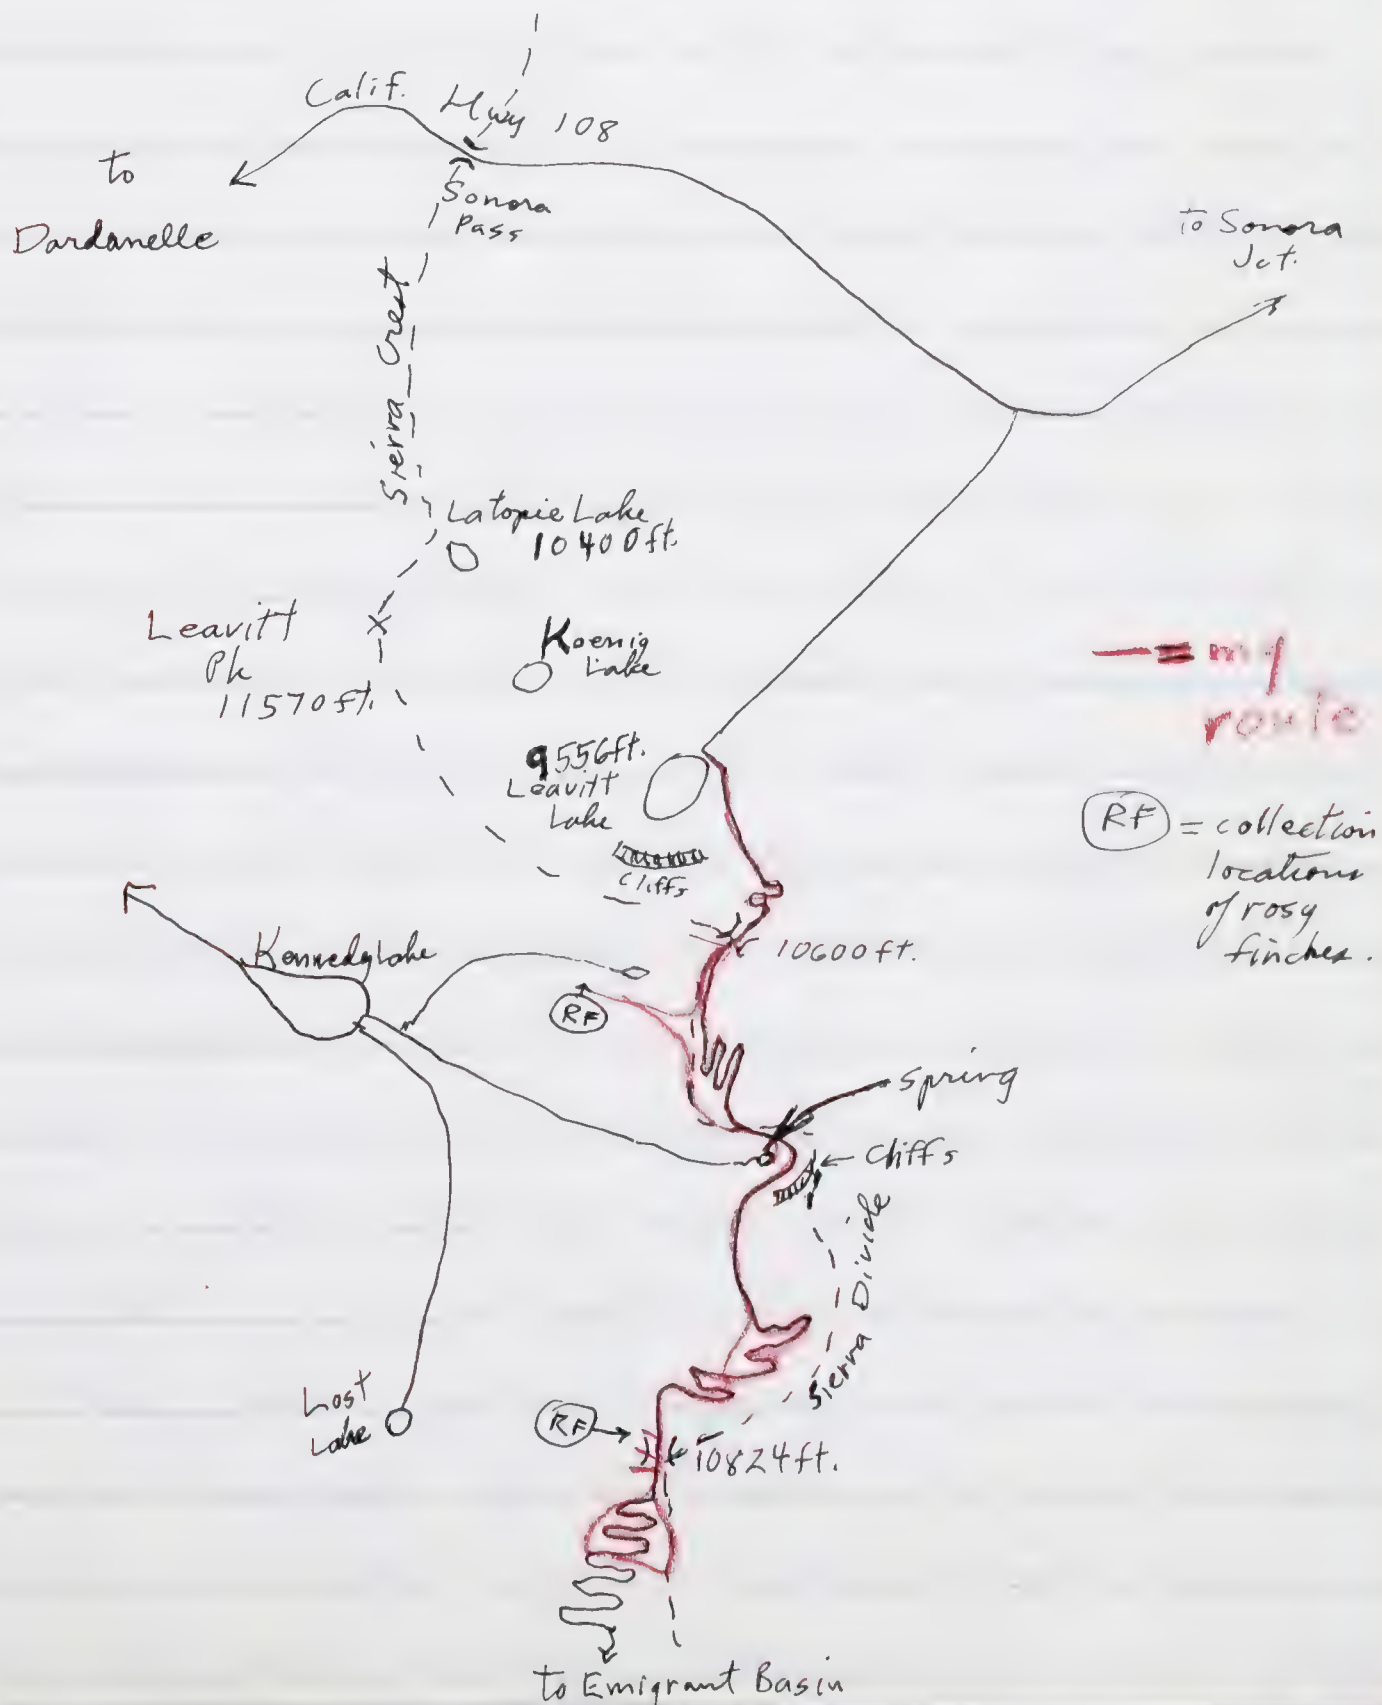 Calif. Hwy 108
to
Dardanelle
Sonora
Pass
to Sonora
Jct.
Sierra Crest
Latopie Lake
10400ft.
Leavitt
Pk
11570ft.
Koenig
Lake
= my
route
9556ft.
Leavitt
Lake
Cliffs
RF = collection
locations
of rosy
finches.
Kennedy Lake
10600ft.
RF
Spring
Cliffs
Sierra Divide
Lost
Lake
RF
10824ft.
to Emigrant Basin